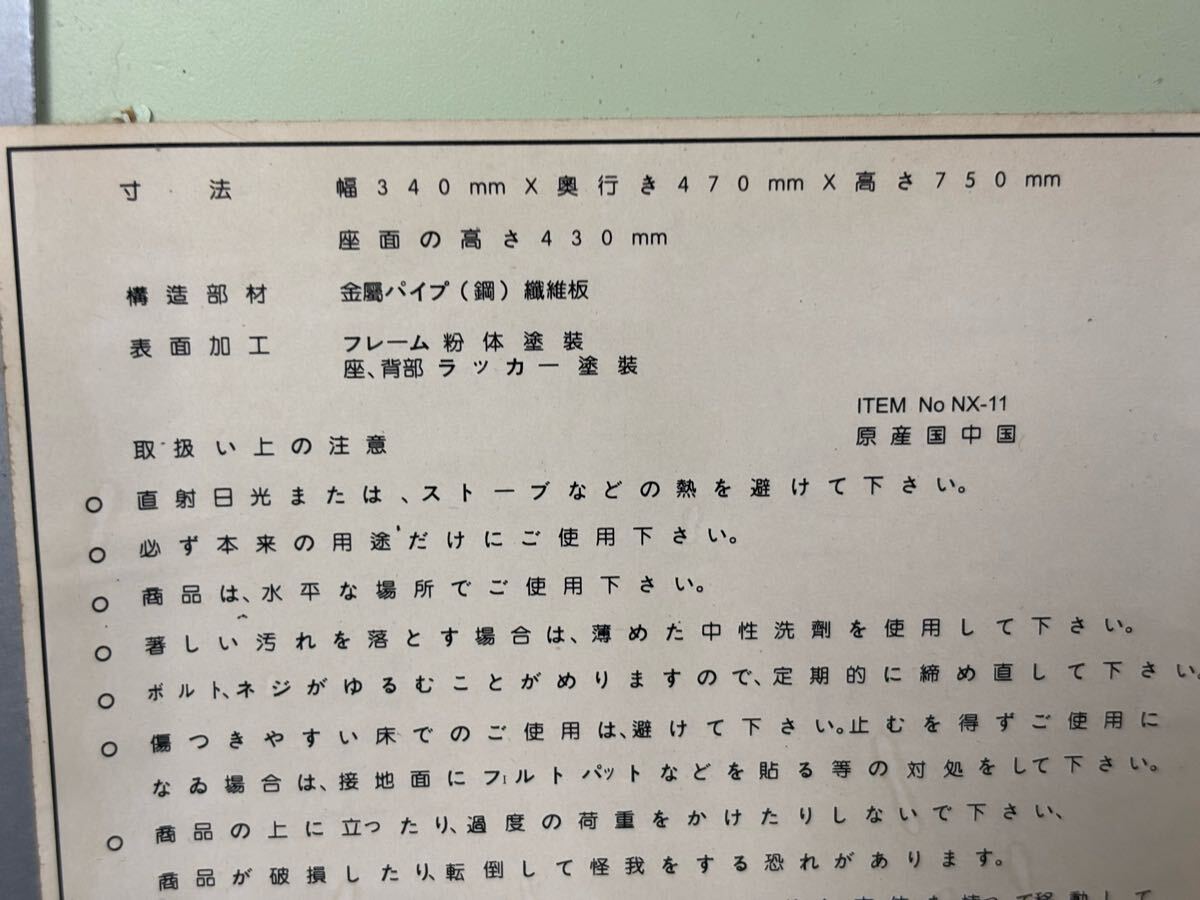 寸法 幅340mm X奥行き470mm X高さ750mm
座面の高さ430mm
構造部材 金屬パイプ(鋼)纖維板
表面加工 フレーム粉体塗装
座、背部ラッカー塗装
ITEM No NX-11
原産国中国
取扱い上の注意
○ 直射日光または、ストーブなどの熱を避けて下さい。
○ 必ず本来の用途だけにご使用下さい。
○ 商品は、水平な場所でご使用下さい。
○ 著しい汚れを落とす場合は、薄めた中性洗劑を使用して下さい。
○ ボルト、ネジがゆるむことがめりますので、定期的に締め直して下さい。
○ 傷つきやすい床でのご使用は、避けて下さい。止むを得ずご使用に
なゐ場合は、接地面にフェルトパットなどを貼る等の対処をして下さい。
○ 商品の上に立ったり、過度の荷重をかけたりしないで下さい、
商品が破損したり、転倒して怪我をする恐れがあります。
を持って移動して